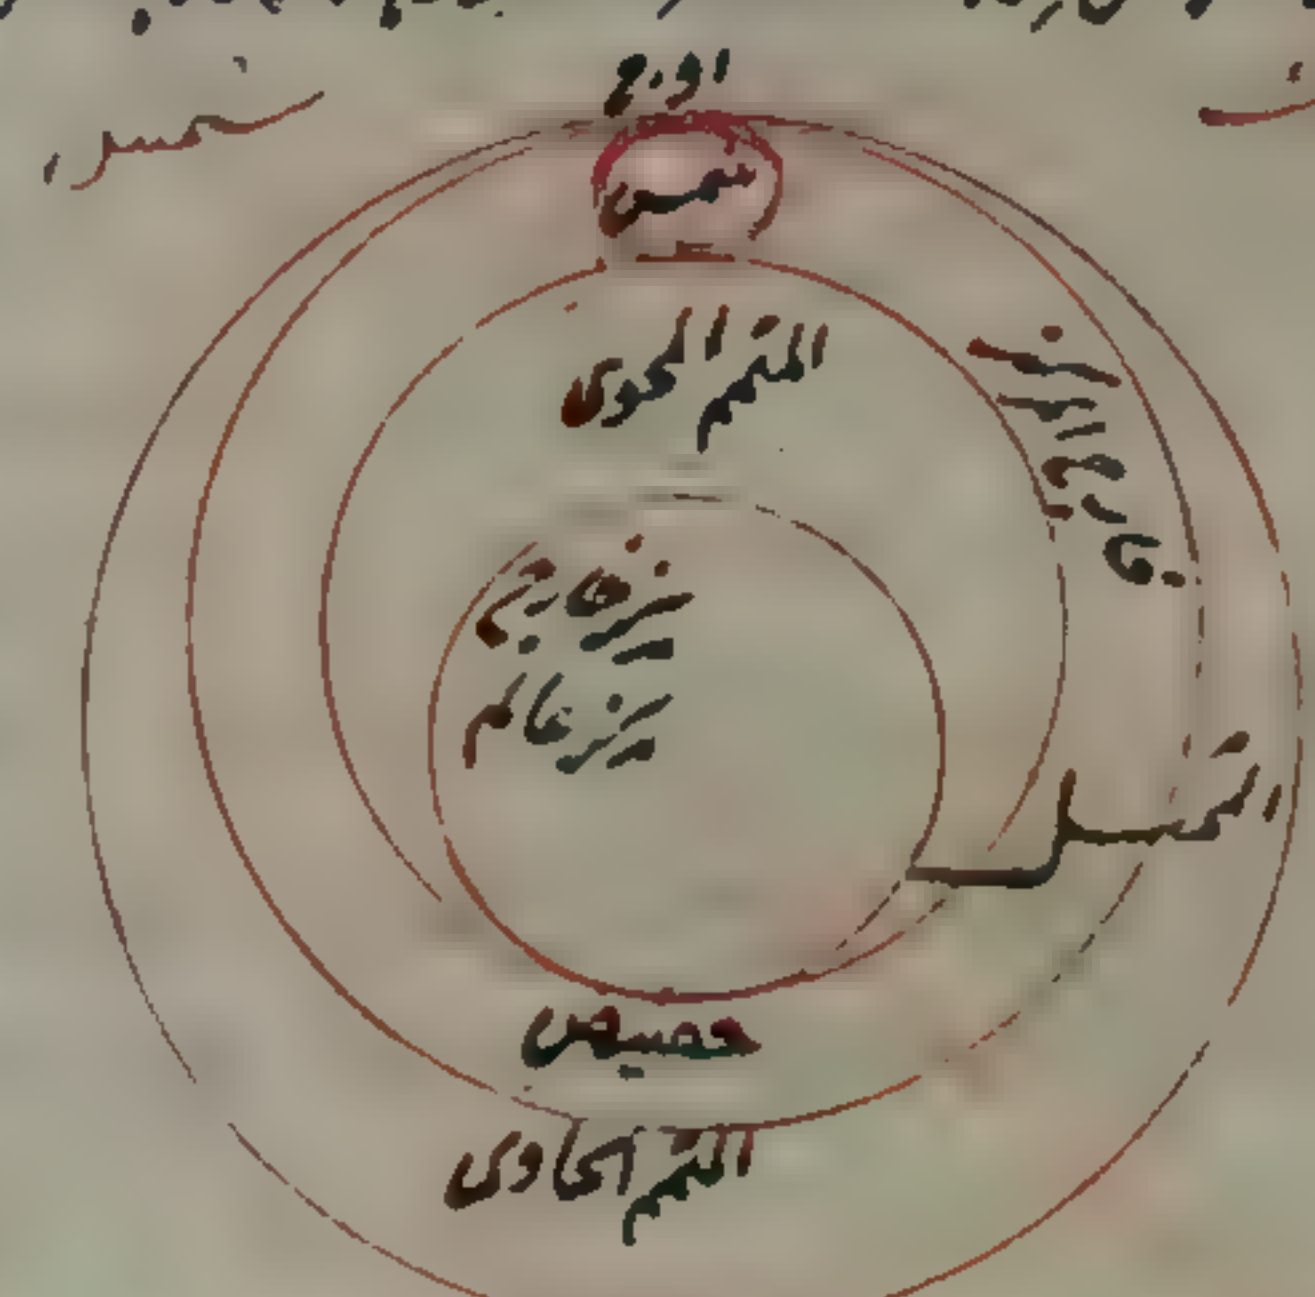 اوج
شمس
المتمم المحوی
خارج المرکز
مرکز خارج
مرکز عالم
الممثل
حضیض
المتمم الحاوی